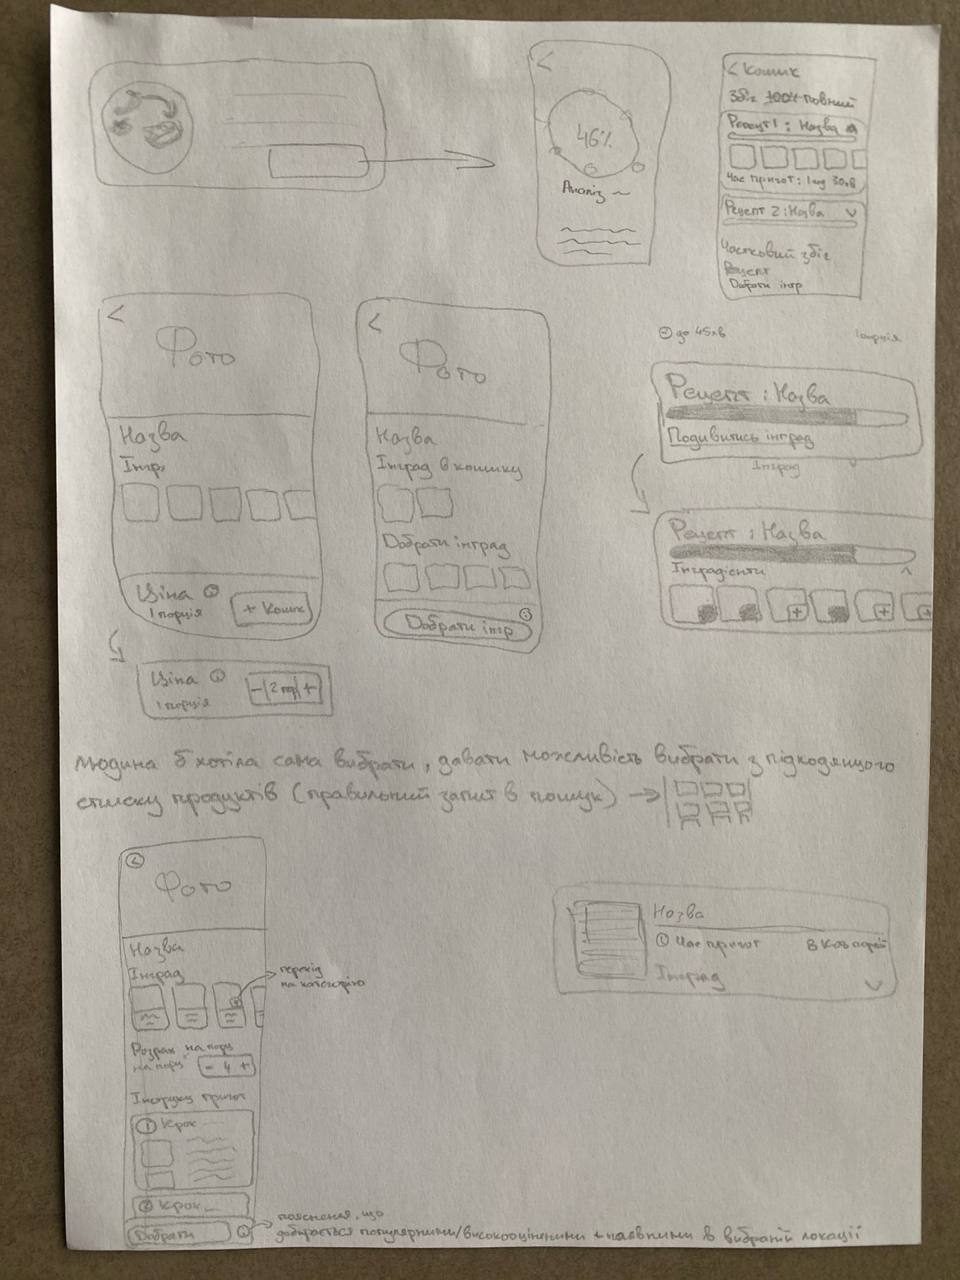 <
46%
Аналіз
< Кошик
Збіг 100% повний
Рецепт 1 : Назва
Час пригот : 1 год 30хв
Рецепт 2 : Назва
Частковий збіг
Рецепт
Добрати інгр
<
Фото
Назва
Інгр,
Ціна
1 порція
+ Кошик
Ціна
1 порція
- 2 +
<
Фото
Назва
Інгрд в кошику
Добрати інгрд
Добрати інгр
до 45хв
1 порція
Рецепт : Назва
Подивитись інгрд
Інгрд
Рецепт : Назва
Інгрдієнти
людина б хотіла сама вибрати, давати можливість вибрати з підходящого
списку продуктів (правильний запит в пошук) →
<
Фото
Назва
Інгрд
перехід
на категорію
на порц
- 4 +
пригот
1 Крок
2 Крок
Добрати
пояснення, що
добирається популярними/високооціненими + наявними в вибраній локації
Назва
Час пригот
8 ккал
Інгрд